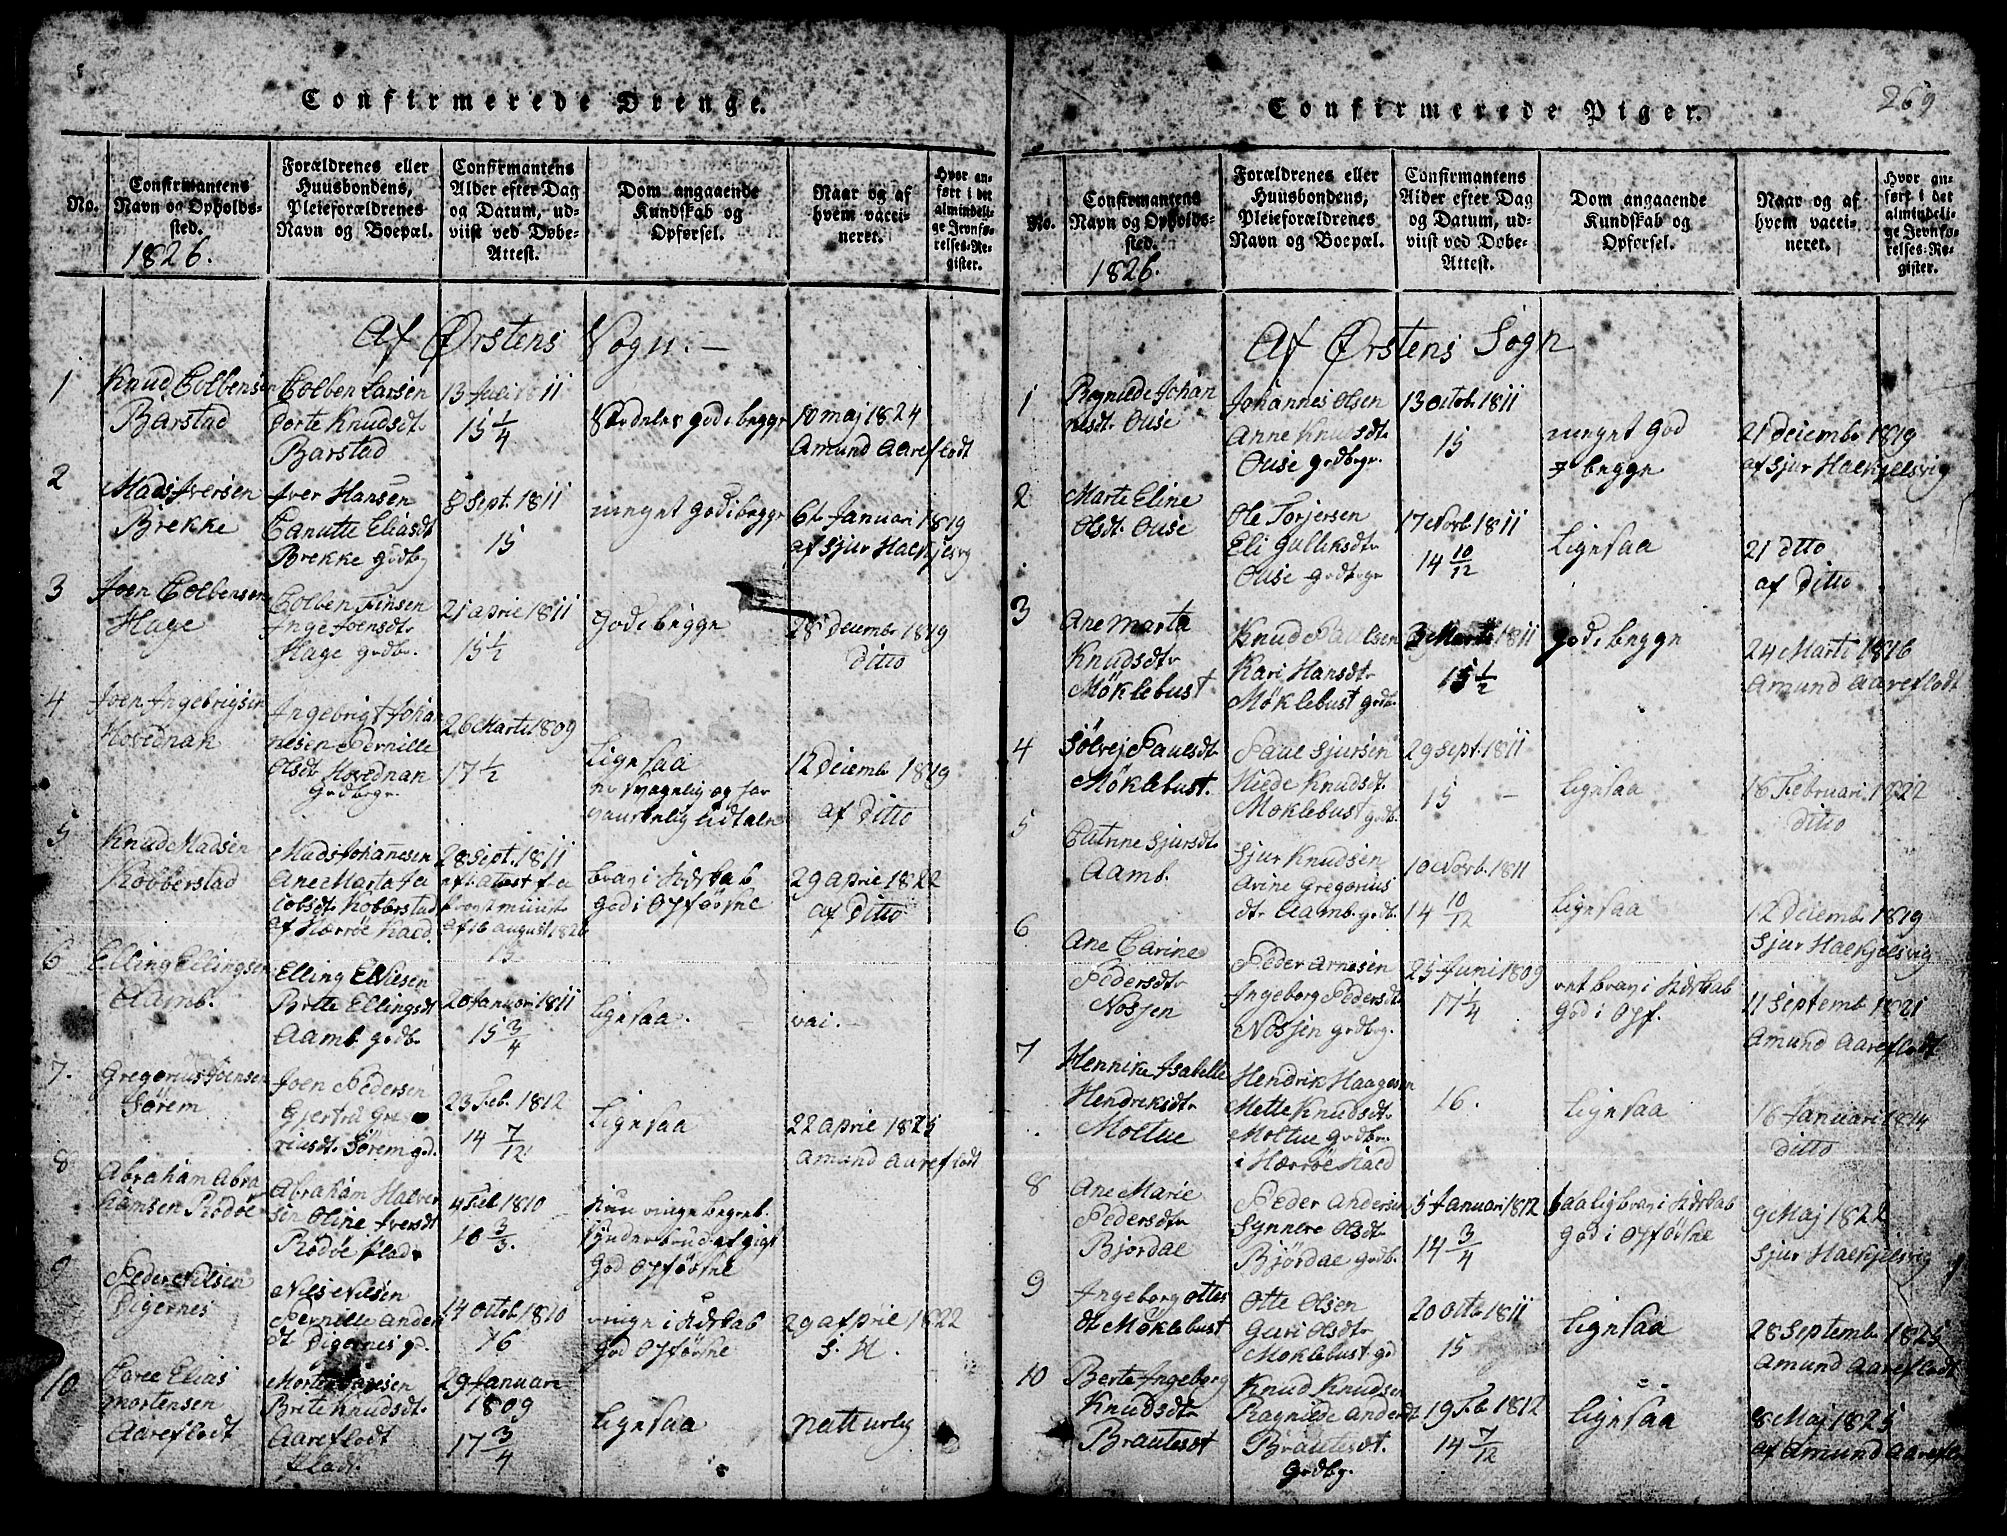 Confirmerede Drenge.
No.
Confirmantens
Navn og Opholds-
sted.
1826.
Forældrenes eller
Huusbondens,
Pleieforældrenes
Navn og Boepæl.
Confirmantens
Alder efter Dag
og Datum, ud-
viist ved Døbe-
Attest.
Dom angaaende
Kundskab og
Opførsel.
Naar og af
hvem vacci-
neret.
Hvor an-
ført i det
almindeli-
ge Jevnfø-
relses-Re-
gister.
Af Ørstens Sogn.
1
Knud Colbensen
Barstad
Colben Larsen
Dorte Knudsdt.
Barstad
13 Juli 1811
15 1/4
Særdeles god i begge
10 maj 1824
Amund Aareflodt
2
Mads Iversen
Brekke
Iver Hansen
Canutte Eliasdt
Brekke gdbg
8 Sept. 1811
15
meget god i begge
6t Januari 1819
af Sjur Haekjelsvig
3
Joen Colbensen
Hage
Colben Finsen
Inge Joensdt.
Hage grdbr.
21 april 1811
15 1/2
God i begge
28 Decembr 1819
Ditto
4
Joen Ingebrigtsen
Hovednak
Ingebrigt Johan
nesen Pernille
Olsdt. Hovednan
grdbegr.
26 Marti 1809
17 1/2
Lignsaa
er svagelig og har
vanskelig Udtale
12 Decemb. 1819
af Ditto
5
Knud Madsen
Kobberstad
Mads Johannesen
Ane Marta Ja
cobsdt. Kobberstad
af Herröe Kald.
28 Sept. 1811
eft. atest fra
Provst
af 16 august 1826
15
brav i Kdskab
god i Opførsle
29 april 1822
af Ditto
6
Elling Ellingsen
Aamb.
Elling
Britte Ellingsdt
Aamb. grdb.
20 Januari 1811
15 3/4
Lignsaa.
vac.
7.
Gregorius Joensen
Sörem
Joen Pedersen
Gjertru Gre
riusdt. Sörem gd.
23 Feb. 1812
14 7/12
Lignsaa
22 april 1825
Amund Aareflodt
8
Abraham Abra
hamsen Rödöe
Abraham Halver
sen Oline Iversdt
Rödöe Plads
4 Feb 1810
10 3/3.
Kun ringe begreb.
synderbrud af gigt
God Opførsle
9
Peder Nilsen
Digernes
Nils Nilsen
Pernille Ander
dt Digernes gd.
14 octob 1810
16
ringe i Kdskab
God Opførsle
29 april 1822
S. H.
10
Carel Elias
Mortensen
Aareflodt
Morten Larsen
Brite Knudsdt.
Aareflodt
Plads.
29 Januari
1809
17 3/4
Lignsaa
Natturlig
269
Confirmerede Piger.
No.
Confirmantens
Navn og Opholds-
sted.
1826.
Forældrenes eller
Huusbondens,
Pleieforældrenes
Navn og Boepæl.
Confirmantens
Alder efter Dag
og Datum, ud-
viist ved Døbe-
Attest.
Dom angaaende
Kundskab og
Opførsel.
Naar og af
hvem vacci-
neret.
Hvor an-
ført i det
almindeli-
ge Jevnfø-
relses-Re-
gister.
Af Ørstens Sogn
1
Regnilde Johan
nesdt. Ouse
Johannes Olsen
Anne Knudsdt.
Ouse grdbegr.
13 octob. 1811
15
meget God
i begge
21 Decembr 1819
af Sjur Haekjelsvig
2
Marte Eline
Olsdt. Ouse
Ole Torjersen
Eli Gulliksdtr
Ouse grdbegr
17 Novb. 1811
14 10/12
Lignsaa
21 Ditto
af Ditto
3
Ane Marta
Knudsdtr
Möklebust
Knud Paulsen
Kari Hansdt.
Möklebust grdb.
3 Marti 1811
15 1/2
god i begge
24 Marti 1816
Amund Aareflodt
4
Sölvej Paulsdt.
Möklebust.
Paul Sjursen
Hilde Knudsdt.
Möklebust grdb.
29 Sept. 1811
15 -
Lignsaa
16 Februari 1822
Ditto
5
Catrine Sjursdt.
Aamb.
Sjur Knudsen
Arine Gregorius
dt. Aamb. grdb.
10 Novb. 1811
14 10/12
Lignsaa
12 Decemb 1819
Sjur Haekjelsvig
6
Ane Carine
Pedersdt
Nossen
Peder Arnesen
Ingeborg Pedersdt
Nossen grdbg.
25 Juni 1809
17 1/4
ret brav i Kdskab
God i Opf.
11 Septemb. 1821
Amund Aareflodt
7
Hennika Isabelle
Hendriksdt.
Moltue
Hendrik Haagesen
Mette Knudsdt.
Moltue grdbr.
i Herröe Kald
16.
Lignsaa
16 Januari 1814
Ditto
8
Ane Marie
Pedersdtr
Bjordal
Peder Andersen
Synneve Olsdt.
Björdal grdb.
5 Januari 1812
14 3/4
taalig brav i Kdskab
God i Opførsle
9 Maj 1822
Sjur Haekjelsvig
9
Ingeborg Ottes
dt. Möklebust
Otte Olsen
Guri Olsdt.
Möklebust gd
20 octb 1811
15
Lignsaa
28 Septemb 1825
Amund Aareflodt
10
Berte Ingeborg
Knudsdt.
Brautesdt
Knud Knudsen
Ragnilde Andersdt
Brautesdt.
Grdbg.
19 Feb 1812
14 7/12
Lignsaa
8 Maj 1825
af Amund Aareflo